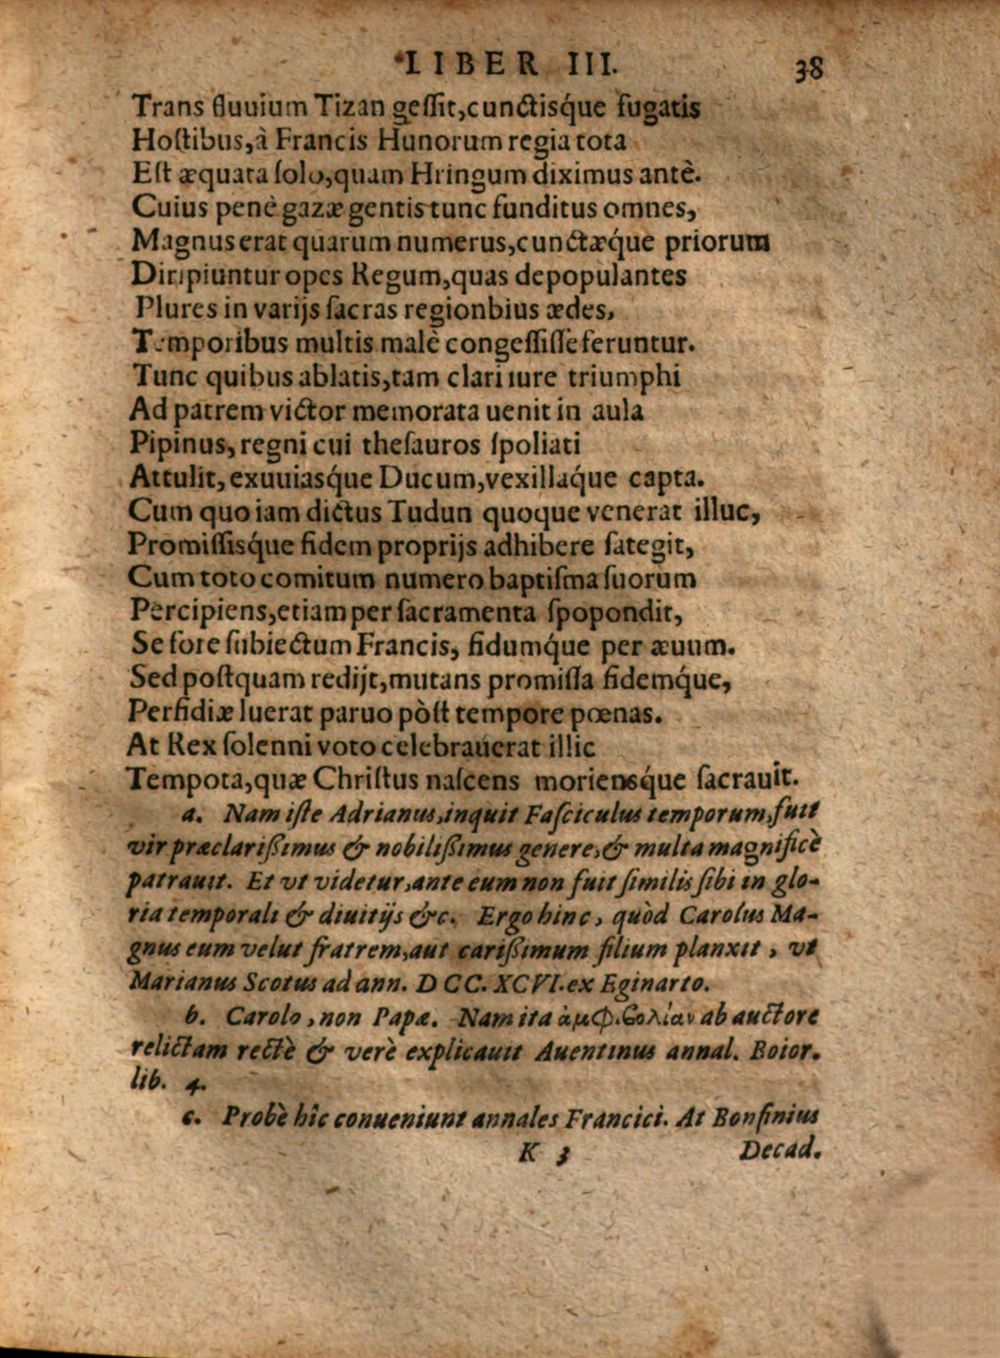 LIBER III. 38
Trans fluuium Tizan geſſit,cunctisq́ue fugatis
Hoſtibus,à Francis Hunorum regia tota
Eſt æquata ſolo,quam Hringum diximus antè.
Cuius penè gazæ gentis tunc funditus omnes,
Magnus erat quarum numerus,cunctæq́ue priorum
Diripiuntur opes Regum,quas depopulantes
Plures in varijs ſacras regionbius ædes,
Temporibus multis malè congeſſiſſè feruntur.
Tunc quibus ablatis,tam clari iure triumphi
Ad patrem victor memorata uenit in aula
Pipinus, regni cui theſauros ſpoliati
Attulit,exuuiasq́ue Ducum,vexillaq́ue capta.
Cum quo iam dictus Tudun quoque venerat illuc,
Promiſſisq́ue fidem proprijs adhibere ſategit,
Cum toto comitum numero baptiſma ſuorum
Percipiens,etiam per ſacramenta ſpopondit,
Se fore ſubiectum Francis, fidumq́ue per æuum.
Sed poſtquam redijt,mutans promiſſa fidemq́ue,
Perfidiæ luerat paruo pòſt tempore pœnas.
At Rex ſolenni voto celebrauerat illic
Tempota,quæ Chriſtus naſcens moriensq́ue ſacrauit.
a. Nam iſte Adrianus,inquit Faſciculus temporum,fuit
vir præclariſſimus & nobiliſſimus genere,& multa magnificè
patrauit. Et vt videtur,ante eum non fuit ſimilis ſibi in glo-
ria temporali & diuitijs &c. Ergo hinc, quòd Carolus Ma-
gnus eum velut fratrem,aut cariſſimum filium planxit, vt
Marianus Scotus ad ann. D CC. XCVI.ex Eginarto.
b. Carolo, non Papæ. Nam ita ἀμφιβολίαν ab auctore
relictam rectè & verè explicauit Auentinus annal. Boior.
lib. 4.
c. Probè hîc conueniunt annales Francici. At Bonfinius
K 3 Decad.